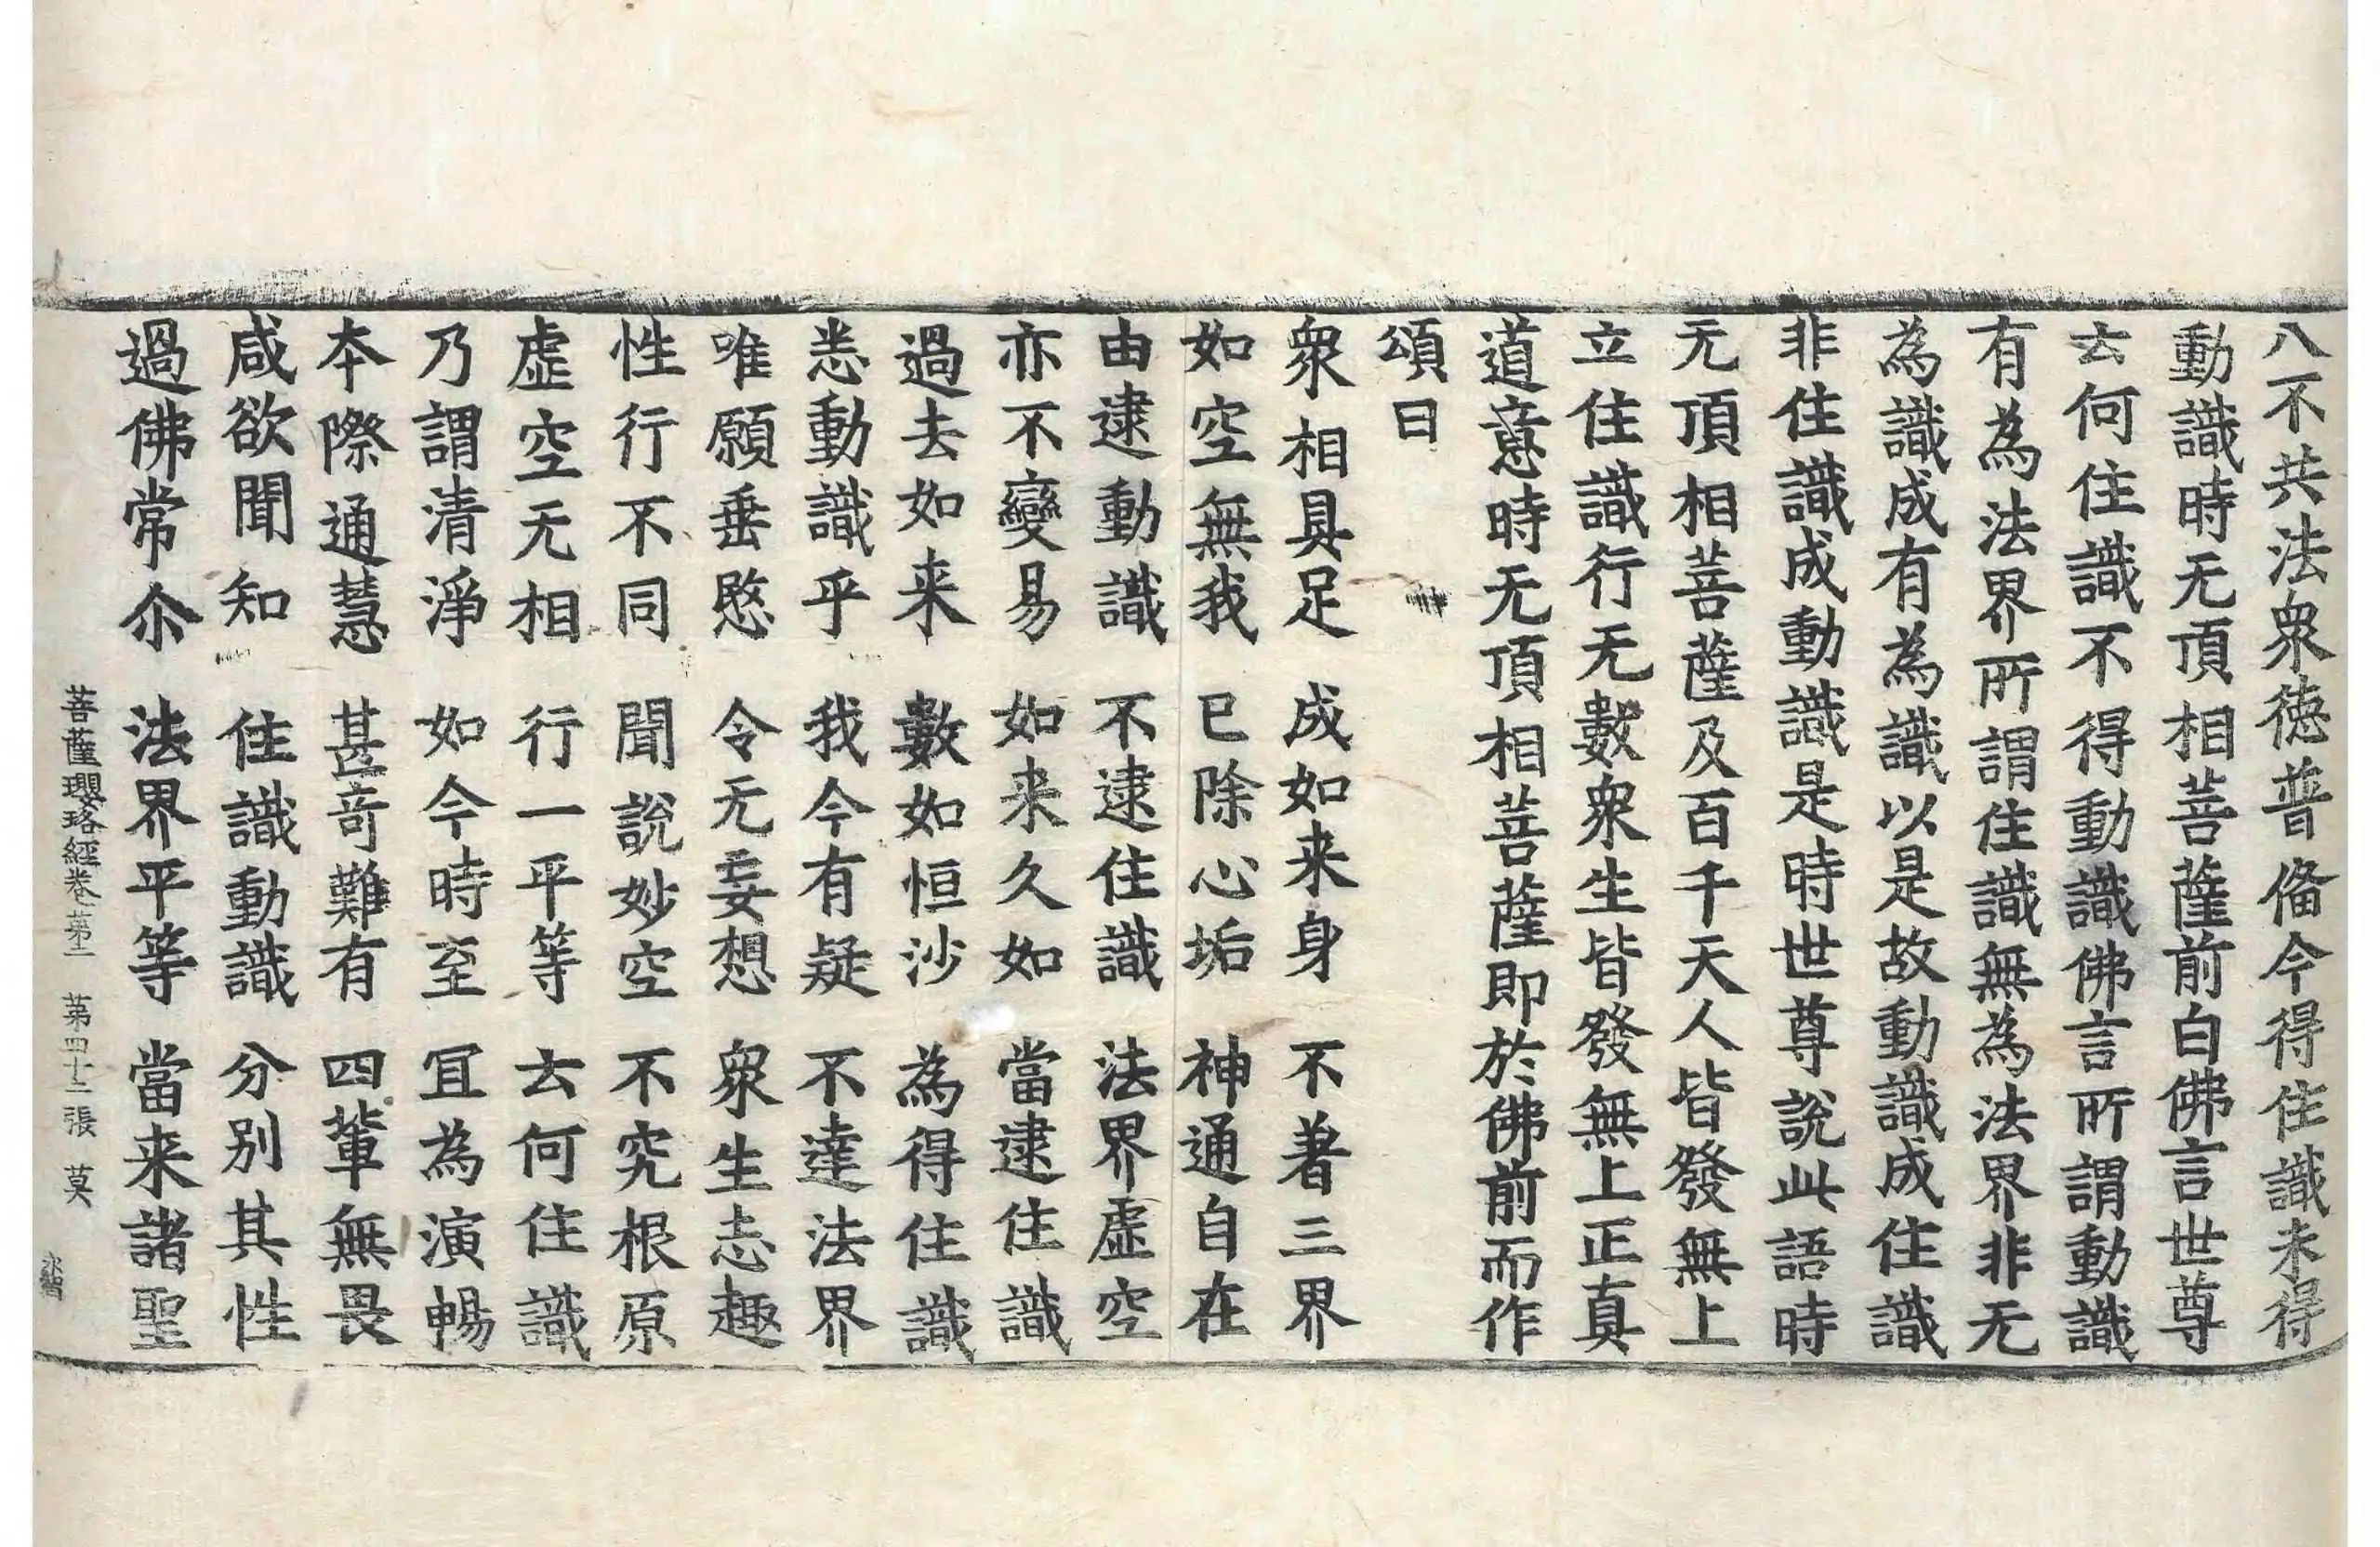 八不共法衆徳普俻今得住識未得
動識時无頂相菩薩前白佛言世尊
云何住識不得動識佛言所謂動識
有為法界所謂住識無為法界非无
為識成有為識以是故動識成住識
非住識成動識是時世尊說此語時
无頂相菩薩及百千天人皆發無上
立住識行无數衆生皆發無上正真
道意時无頂相菩薩即於佛前而作
頌曰
衆相具足 成如来身 不著三界
如空無我 已除心垢 神通自在
由逮動識 不逮住識 法界虛空
亦不變易 如来久如 當逮住識
過去如来 數如恒沙 為得住識
悉動識乎 我今有疑 不達法界
唯願垂愍 令无妄想 衆生志趣
性行不同 聞說妙空 不究根原
虛空无相 行一平等 云何住識
乃謂清淨 如今時至 宜為演暢
本際通慧 甚奇難有 四輩無畏
咸欲聞知 住識動識 分別其性
過佛常尒 法界平等 當来諸聖
菩薩瓔珞經卷第二 第四十二張 莫